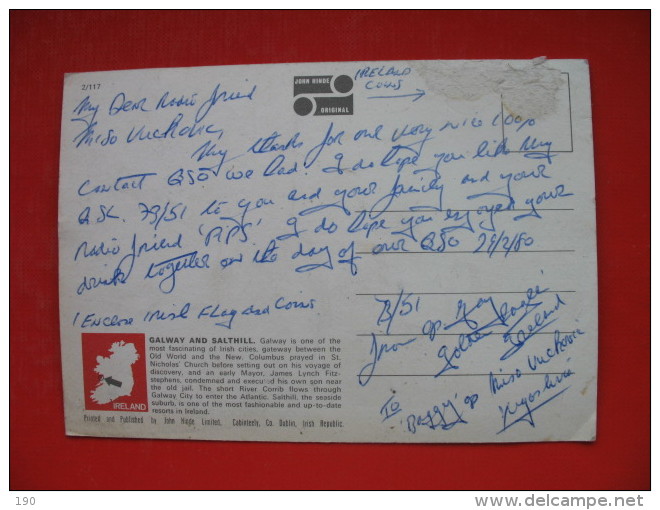 2/117
JOHN HINDE
ORIGINAL
IRELAND
COINS
My Dear Radio friend
Miso Vuckovic,
My thanks for our very nice 100%
Contact QSO we had. I do hope you like my
QSL. 73/51 to you and your family and your
radio friend I do hope you enjoyed your
drink together on the day of our QSO 29/2/80
I Enclose Irish Flag and Coins
73/51
from op
Ireland
To
op Miso Vuckovic
Yugoslavia
GALWAY AND SALTHILL. Galway is one of the
most fascinating of Irish cities, gateway between the
Old World and the New. Columbus prayed in St.
Nicholas' Church before setting out on his voyage of
discovery, and an early Mayor, James Lynch Fitz-
stephens, condemned and executed his own son near
the old jail. The short River Corrib flows through
Galway City to enter the Atlantic. Salthill, the seaside
suburb, is one of the most fashionable and up-to-date
resorts in Ireland.
IRELAND
Printed and Published by John Hinde Limited, Cabinteely, Co. Dublin, Irish Republic.
190
www.delcampe.net